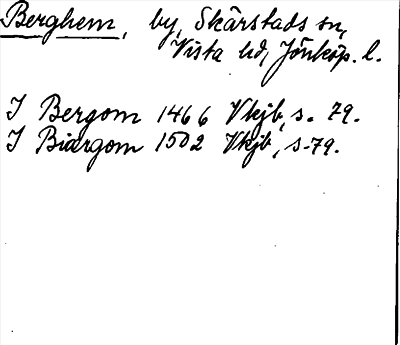 Berghem, by, Skärstads sn,
Vista hd, Jönköp. l.
I Bergom 1466 Vkjb, s. 79.
I Biärgom 1502 Vkjb, s. 79.